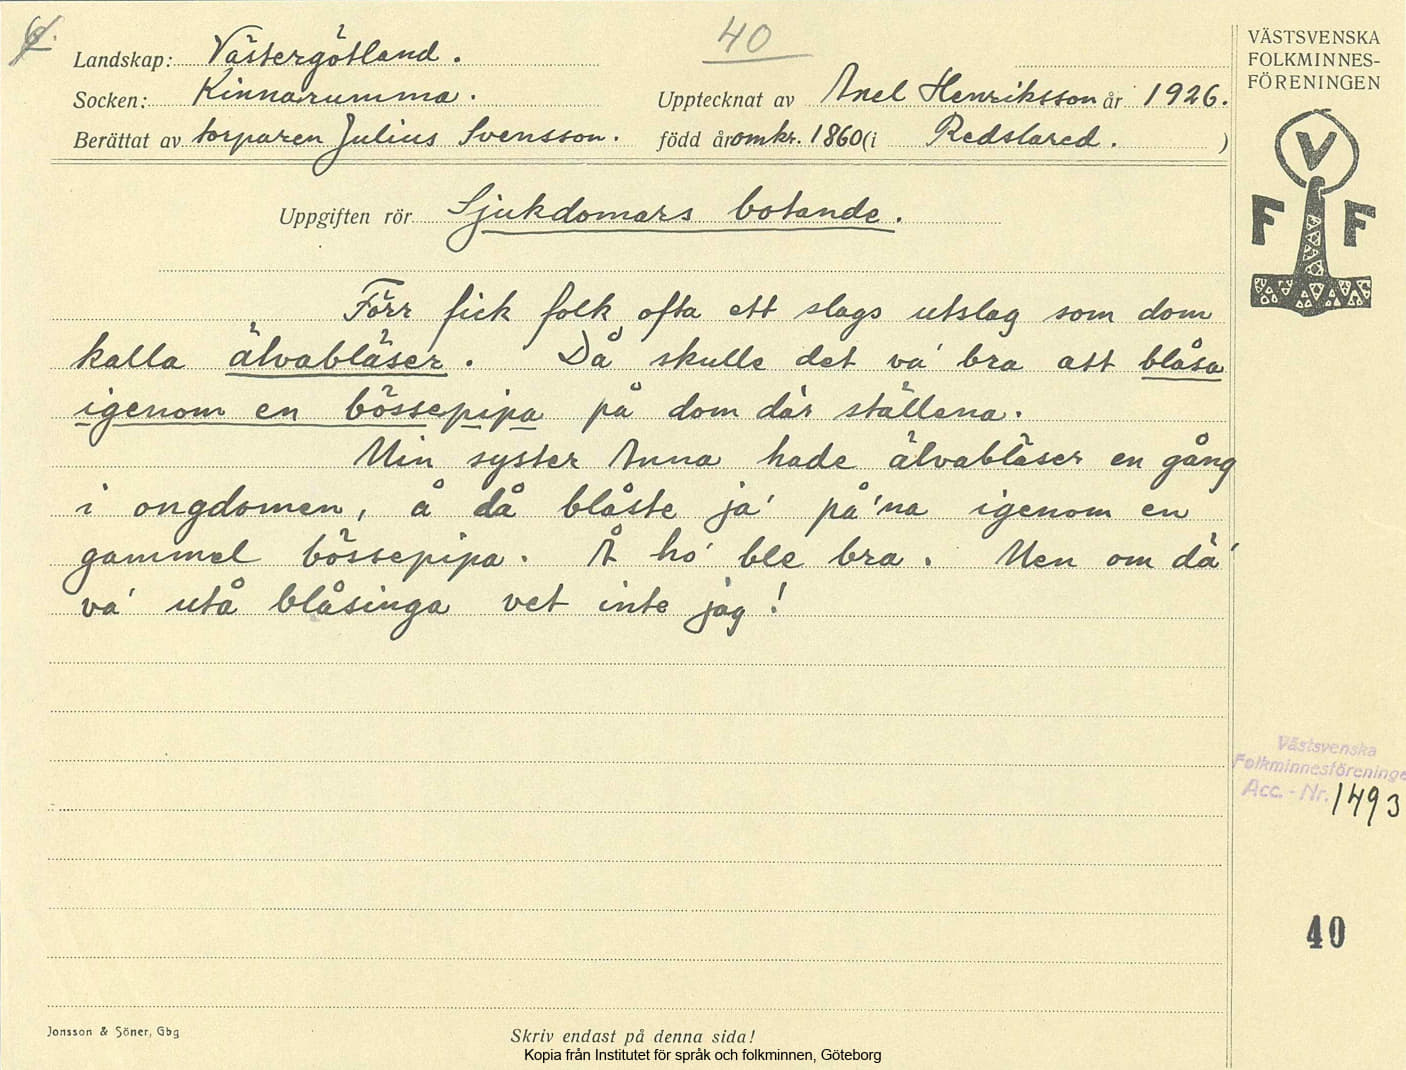 40
Landskap: Västergötland.
Socken: Kinnarumma.
Upptecknat av Axel Henriksson år 1926.
Berättat av torparen Julius Svensson.
född år omkr. 1860 (i Redslared. )
Uppgiften rör Sjukdomars botande.
Förr fick folk ofta ett slags utslag som dom
kalla älvabläser. Då skulle det va' bra att blåsa
igenom en bössepipa på dom där ställena.
Min syster Anna hade älvabläser en gång
i ongdomen, å då blåste ja' på'na igenom en
gammel bössepipa. Å ho' ble bra. Men om dä'
va' utå blåsinga vet inte jag!
VÄSTSVENSKA
FOLKMINNES-
FÖRENINGEN
V
F F
Västsvenska
Folkminnesföreninge
Acc. - Nr. 1493
40
Jonsson & Söner, Gbg
Skriv endast på denna sida!
Kopia från Institutet för språk och folkminnen, Göteborg